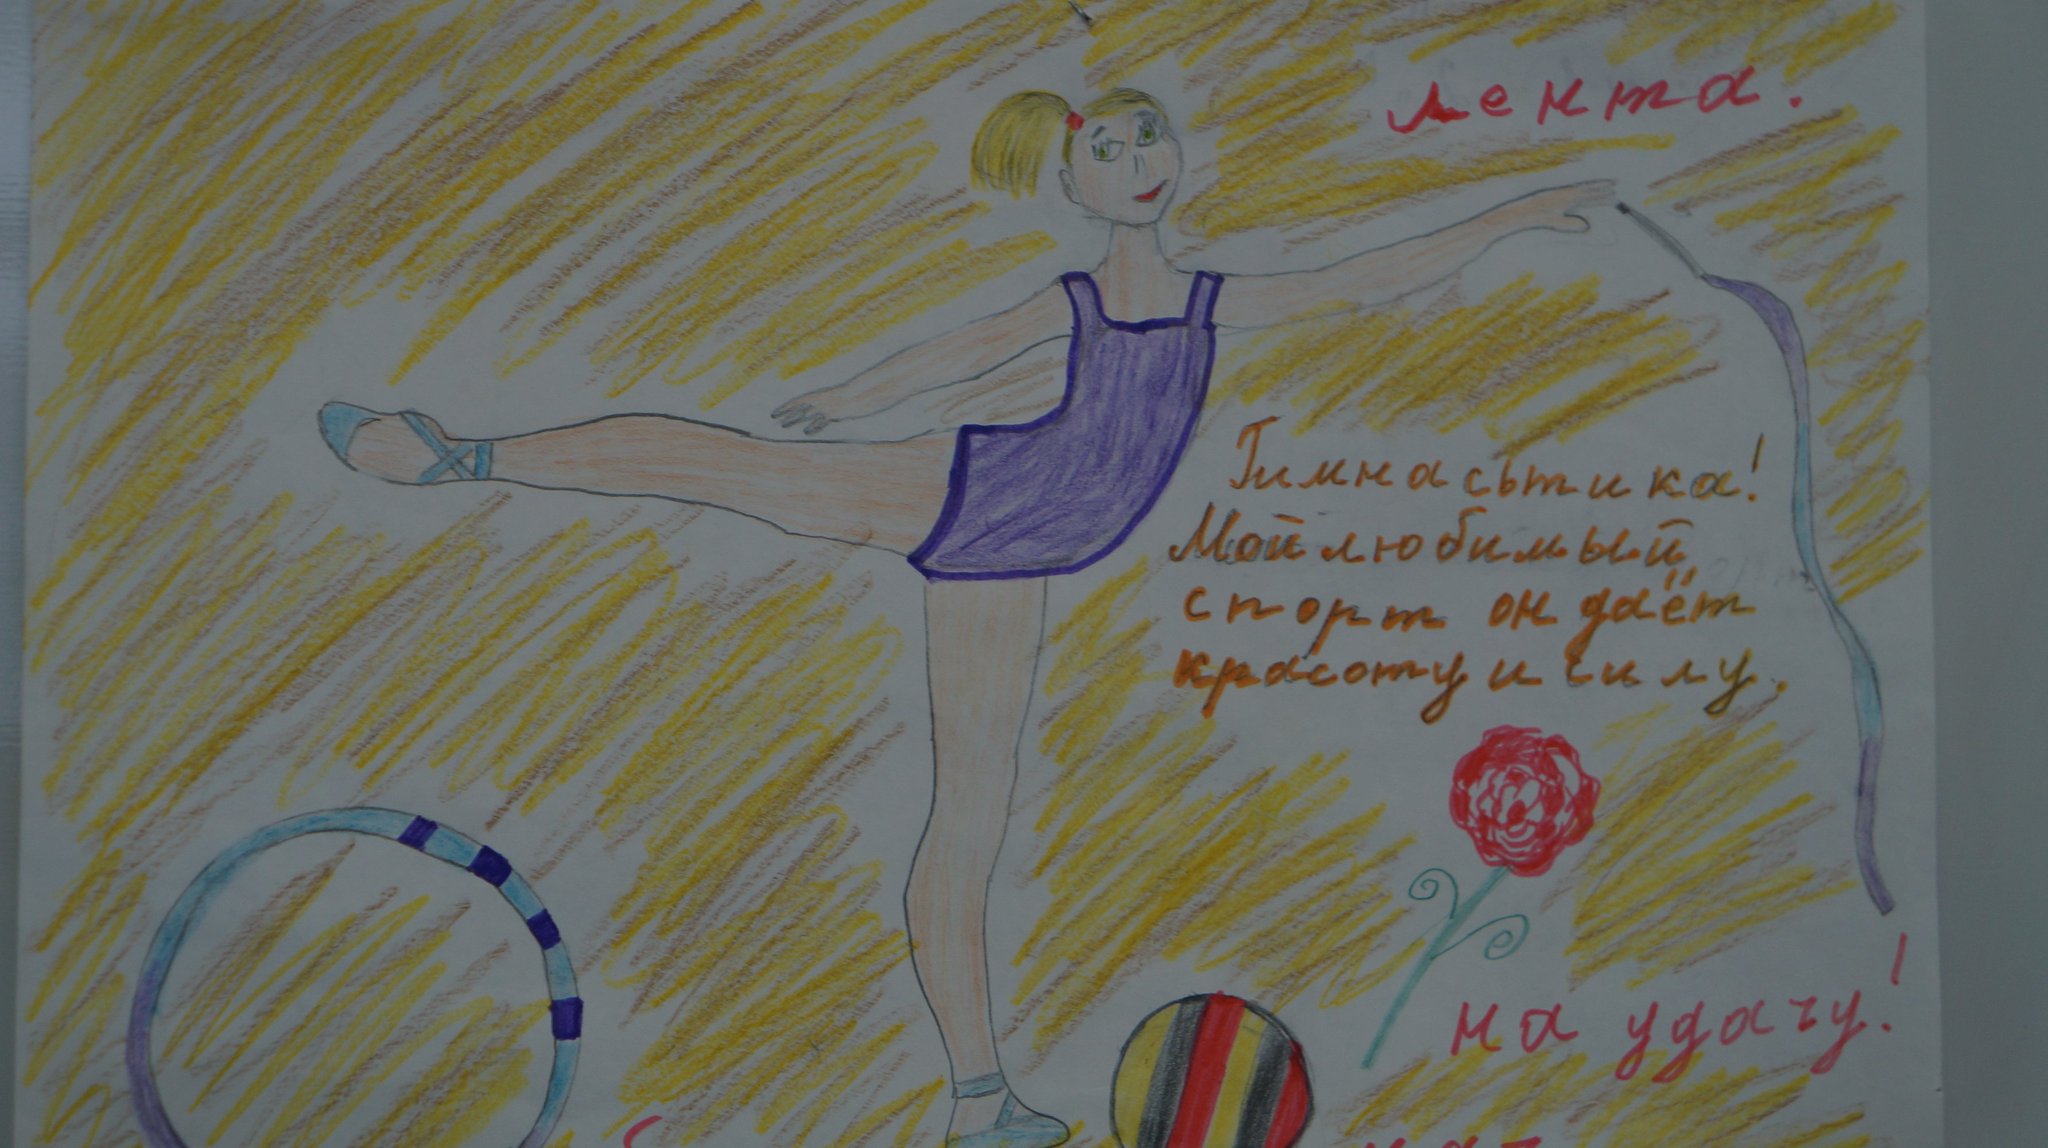 лента.
Гимнасьтика!
Мой любимый
спорт он даёт
красоту и силу.
на удачу!